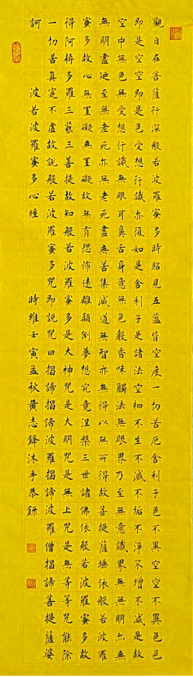 觀自在菩薩行深般若波羅蜜多時照見五蘊皆空度一切苦厄舍利子色不異空空不異色色
即是空空即是色受想行識亦復如是舍利子是諸法空相不生不滅不垢不淨不增不減是故
空中無色無受想行識無眼耳鼻舌身意無色聲香味觸法無眼界乃至無意識界無無明亦無
無明盡乃至無老死亦無老死盡無苦集滅道無智亦無得以無所得故菩提薩埵依般若波羅
蜜多故心無罣礙無罣礙故無有恐怖遠離顛倒夢想究竟涅槃三世諸佛依般若波羅蜜多故
得阿耨多羅三藐三菩提故知般若波羅蜜多是大神咒是大明咒是無上咒是無等等咒能除
一切苦真實不虛故說般若波羅蜜多咒即說咒曰揭諦揭諦波羅揭諦波羅僧揭諦菩提薩婆
訶 波若波羅蜜多心經 時維壬寅孟秋黃志鋒沐手恭錄